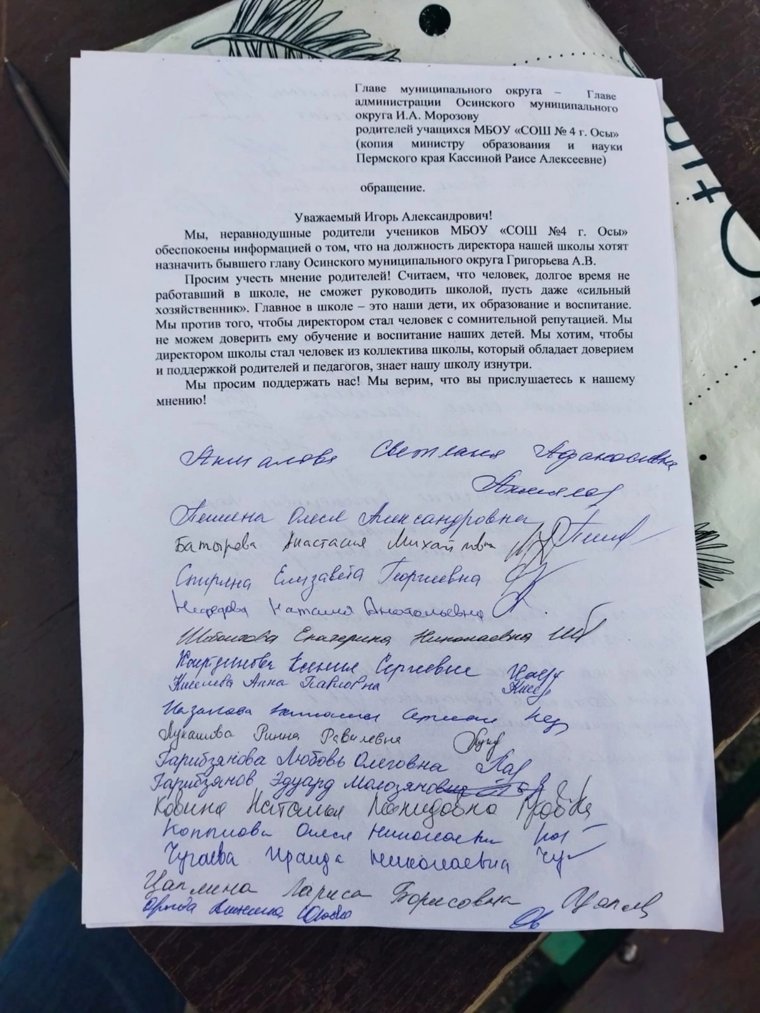 Главе муниципального округа – Главе
администрации Осинского муниципального
округа И.А. Морозову
родителей учащихся МБОУ «СОШ № 4 г. Осы»
(копия министру образования и науки
Пермского края Кассиной Раисе Алексеевне)
обращение.
Уважаемый Игорь Александрович!
Мы, неравнодушные родители учеников МБОУ «СОШ №4 г. Осы»
обеспокоены информацией о том, что на должность директора нашей школы хотят
назначить бывшего главу Осинского муниципального округа Григорьева А.В.
Просим учесть мнение родителей! Считаем, что человек, долгое время не
работавший в школе, не сможет руководить школой, пусть даже «сильный
хозяйственник». Главное в школе – это наши дети, их образование и воспитание.
Мы против того, чтобы директором стал человек с сомнительной репутацией. Мы
не можем доверить ему обучение и воспитание наших детей. Мы хотим, чтобы
директором школы стал человек из коллектива школы, который обладает доверием
и поддержкой родителей и педагогов, знает нашу школу изнутри.
Мы просим поддержать нас! Мы верим, что вы прислушаетесь к нашему
мнению!
Светлана
Олеся Александровна
Батырова Анастасия Михайловна
Елизавета Георгиевна
Наталия Анатольевна
Екатерина Николаевна
Ксения Сергеевна
Киселева Анна Павловна
Лукашова Ринна Равилевна
Гарибзянова Любовь Олеговна
Гарибзянов Эдуард
Наталья Леонидовна
Олеся Николаевна
Чугаева Ираида Николаевна
Цаплина Лариса Борисовна